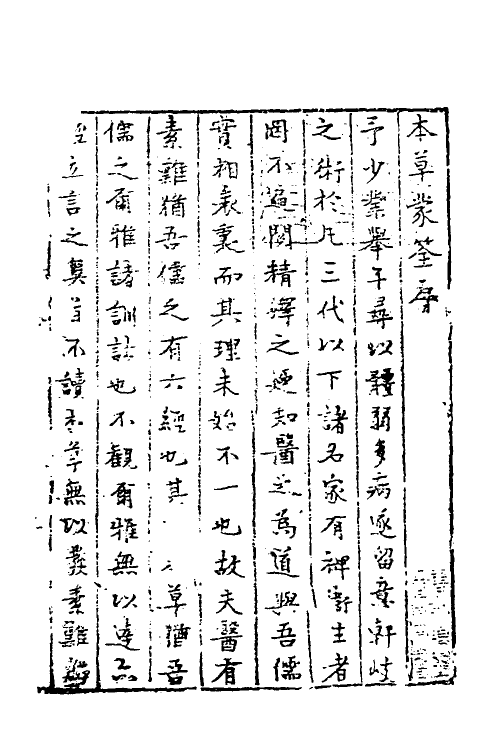 本草蒙筌序
予少業舉子尋以軆弱多病遂留意軒岐
之術於凡三代以下諸名家有裨衛生者
罔不遍閱精繹之廼知醫之為道與吾儒
實相表裏而其理未始不一也故夫醫有
素難猶吾儒之有六經也其草猶吾
儒之爾雅諸訓詁也不觀爾雅無以達六
經立言之奥不讀本草無以發素難